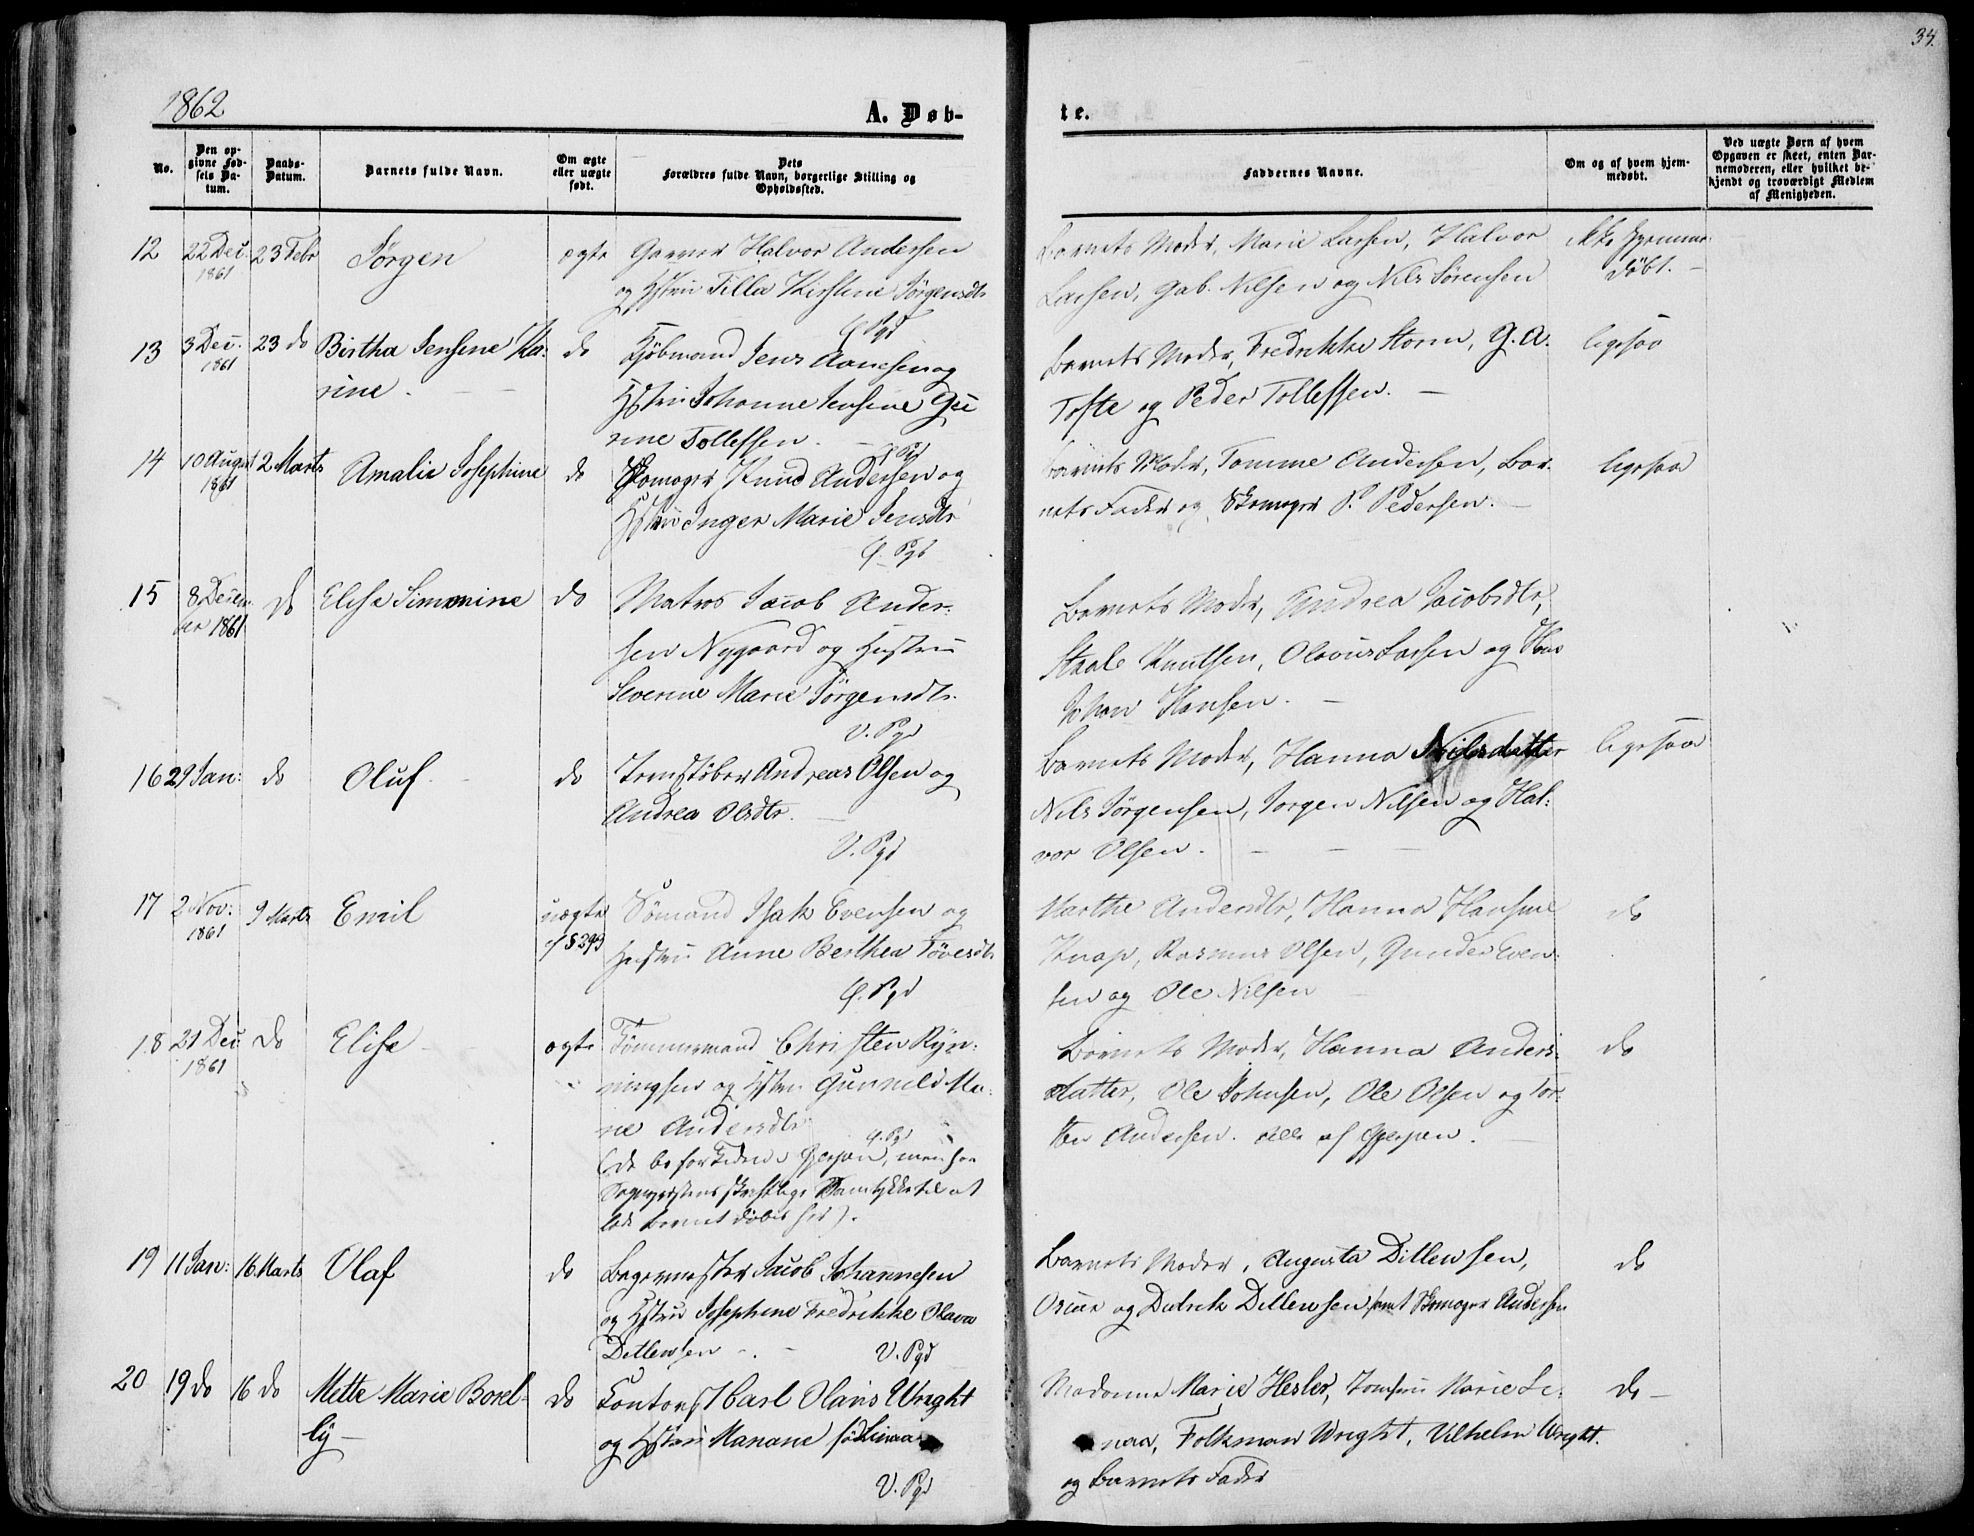 34.
1862
A. Døb-
te.
No.
Den op-
givne Fød-
sels Da-
tum.
Daabs-
Datum.
Barnets fulde Navn.
Om ægte
eller uægte
født.
Dets
Forældres fulde Navn, borgerlige Stilling og
Opholdssted.
Faddernes Navne.
Om og af hvem hjem-
medøbt.
Ved uægte Børn af hvem
Opgaven er skeet, enten Bar-
nemoderen, eller hvilket be-
kjendt og troværdigt Medlem
af Menigheden.
12 22 Dec. 1861 23 Febr Jørgen ægte Garver Halvor Andersen
og Hstru Tilla Kirstine Jørgensdtr
Barnets Moder, Marie Larsen, Halvor
Larsen, Gab. Nilsen og Nils Sørensen
ikke hjemme-
døbt.
13 3 Dec. 1861 23 do Birtha Jensine Ka-
rine.
do Kjøbmand Jens Aanesen og
Hstru Johanne Jensine Gu
rine Tollefsen.
Barnets Moder, Fredrikke Storm, G. A.
Tofte og Peder Tollefsen.
ligesaa
14 10 August 1861 2 Marts Amalie Josephine do Skomager Knud Andersen og
Hstru Inger Marie Jensdtr
Barnets Moder, Tomme Andersen, Bar-
nets Fader og Skomager P. Pedersen.
ligesaa
15 8 Decem-
ber 1861 do Elise Simonine do Matros Jacob Ander-
sen Nygaard og Hustru
Severine Marie Jørgensdtr.
V. Pgd
Barnets Moder, Andrea Jacobsdtr,
Staale Knutsen, Olavus Larsen og Hans
Johan Hansen.
16 29 Jan: do Oluf do Jernstøber Andreas Olsen og
Andrea Olsdtr.
V. Pgd
Barnets Moder, Hanna Nilsdatter
Nils Jørgensen, Jørgen Nilsen og Hal-
vor Olsen.
ligesaa
17 2 Nov: 1861 9 Marts Emil uægte
Sømand Isak Evensen og
Hustru Anne Berthea Tovesdtr
Marthe Andersdtr, Hanna Hansine
Knap, Rasmus Olsen, Gunder Even-
sen og Ole Nilsen
do
18 21 Dec 1861 do Elise ægte Tømmermand Christen Ryn-
ningsen og Hstru Gunnild Ma-
rie Andersdtr
(de bo for Tiden i Gjerpen, men har
Sognepræstens skriftlige Samtykke til at
lade Barnet døbes her).
Barnets Moder, Hanna Anders-
datter, Ole Johnsen, Ole Olsen og Tor-
sten Andersen. Alle af Gjerpen.
do
19 11 Jan: 16 Marts Olaf do Bagermester Jacob Johannesen
og Hstru Josephine Fredrikke Olava
Ditlevsen
V. Pgd
Barnets Moder, Augusta Ditlevsen,
Oscar og Didrik Ditlevsen samt Skomager Andersen
do
20 19 do 16 do Mette Marie Borel-
ly
do Kontorist Karl Olavis Wright
og Hstru Mariane født Linaae
V. Pgd
Madamme Marie Hesler, Jomfru Marie Li-
naa, Folkman Wright, Vilhelm Wright.
og Barnets Fader
do